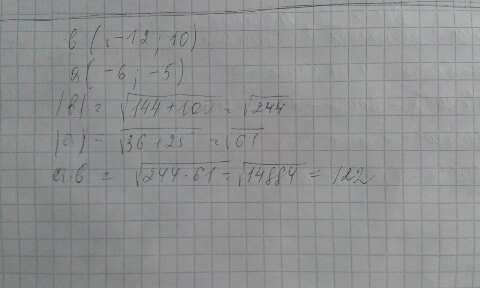 b (-12; 10)
a (-6; -5)
|b| = √144+100 = √244
|a| = √36+25 = √61
a·b = √244·61 = √14884 = 122